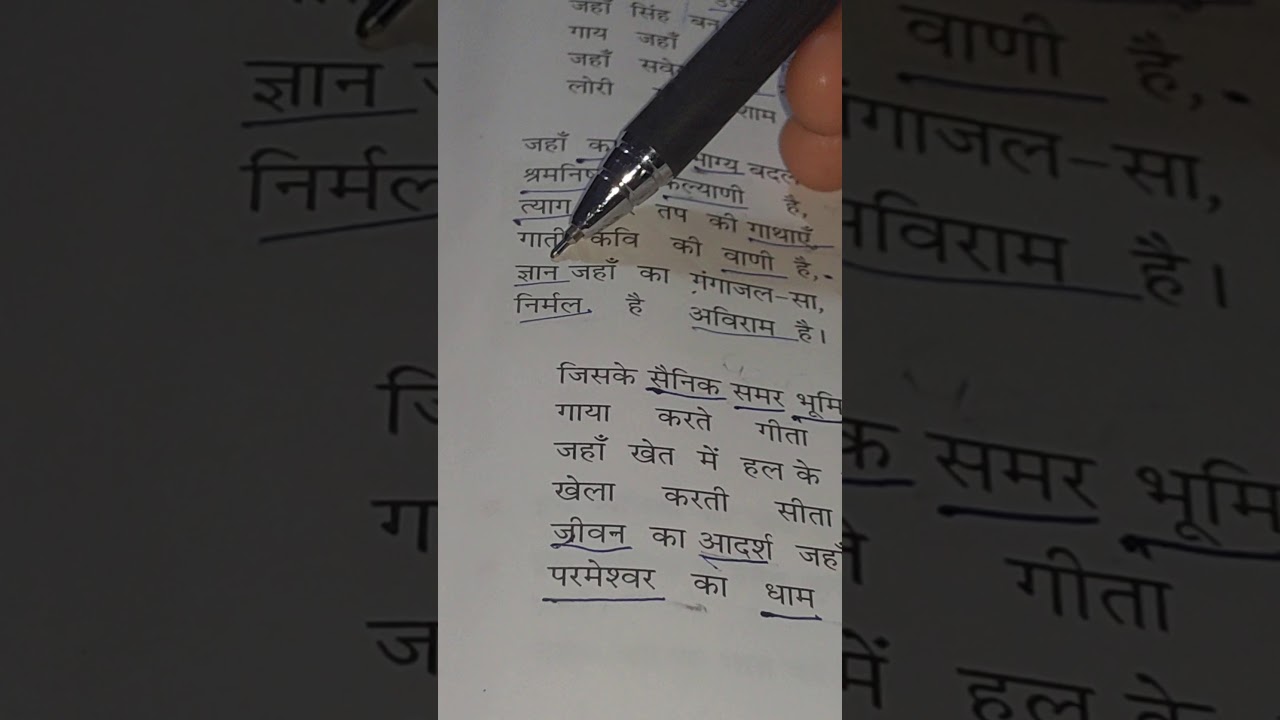 जहाँ सिंह बन
गाय जहाँ
जहाँ
लोरी
जहाँ बदल
है,
त्याग तप की गाथाएँ
गाती कवि की वाणी है,
ज्ञान जहाँ का गंगाजल-सा,
निर्मल है अविराम है।
जिसके सैनिक समर भूमि
गाया करते गीता
जहाँ खेत में हल के
खेला करती सीता
जीवन का आदर्श जहाँ
परमेश्वर का धाम